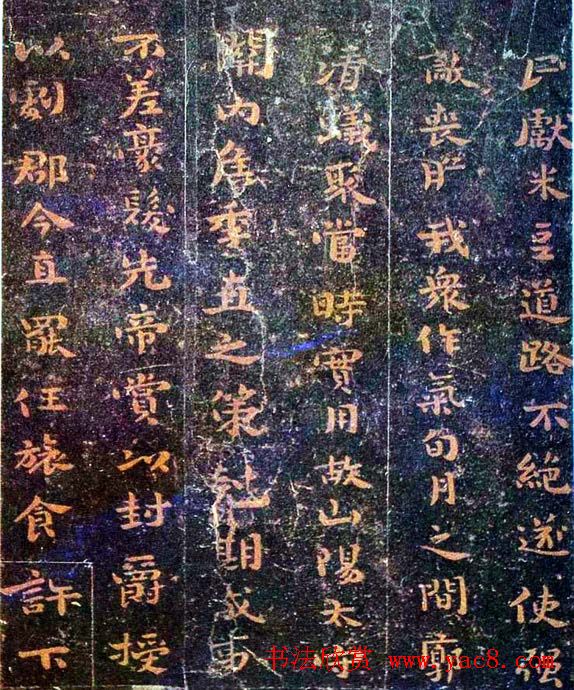 民獻米豆道路不絕遂使強
敵喪膽我衆作氣旬月之間廓
清蟻聚當時實用故山陽太守
關內侯季直之策尅期成事
不差豪髮先帝賞以封爵授
以劇郡今直罷任旅食許下
书法欣赏 www.yac8.com